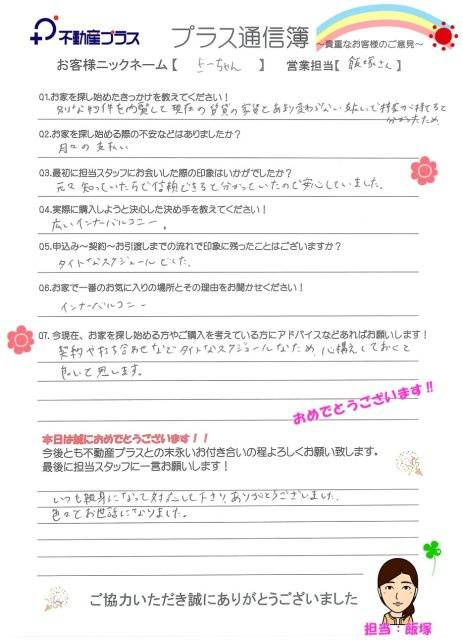 不動産プラス プラス通信簿 ～貴重なお客様のご意見～
お客様ニックネーム【 よーちゃん 】 営業担当【 飯塚さん 】
Q1.お家を探し始めたきっかけを教えてください！
別な物件を内覧して現在の賃貸の家賃とあまり変わらない支払いで持家が持てると
分かったため
Q2.お家を探し始める際の不安などはありましたか？
月々の支払い
Q3.最初に担当スタッフにお会いした際の印象はいかがでしたか？
元々知っていたので信頼できると分かっていたので安心していました。
Q4.実際に購入しようと決心した決め手を教えてください！
広いインナーバルコニー。
Q5.申込み～契約～お引渡しまでの流れで印象に残ったことはございますか？
タイトなスケジュールでした。
Q6.お家で一番のお気に入りの場所とその理由をお聞かせください！
インナーバルコニー
Q7.今現在、お家を探し始める方やご購入を考えている方にアドバイスなどあればお願いします！
契約や打ち合わせなどタイトなスケジュールなため、心構えしておくと
良いと思います。
おめでとうございます!!
本日は誠におめでとうございます！！
今後とも不動産プラスとの末永いお付き合いの程よろしくお願い致します。
最後に担当スタッフに一言お願いします！
いつも親身になって対応して下さり、ありがとうございました。
色々とお世話になりました。
ご協力いただき誠にありがとうございました
担当：飯塚